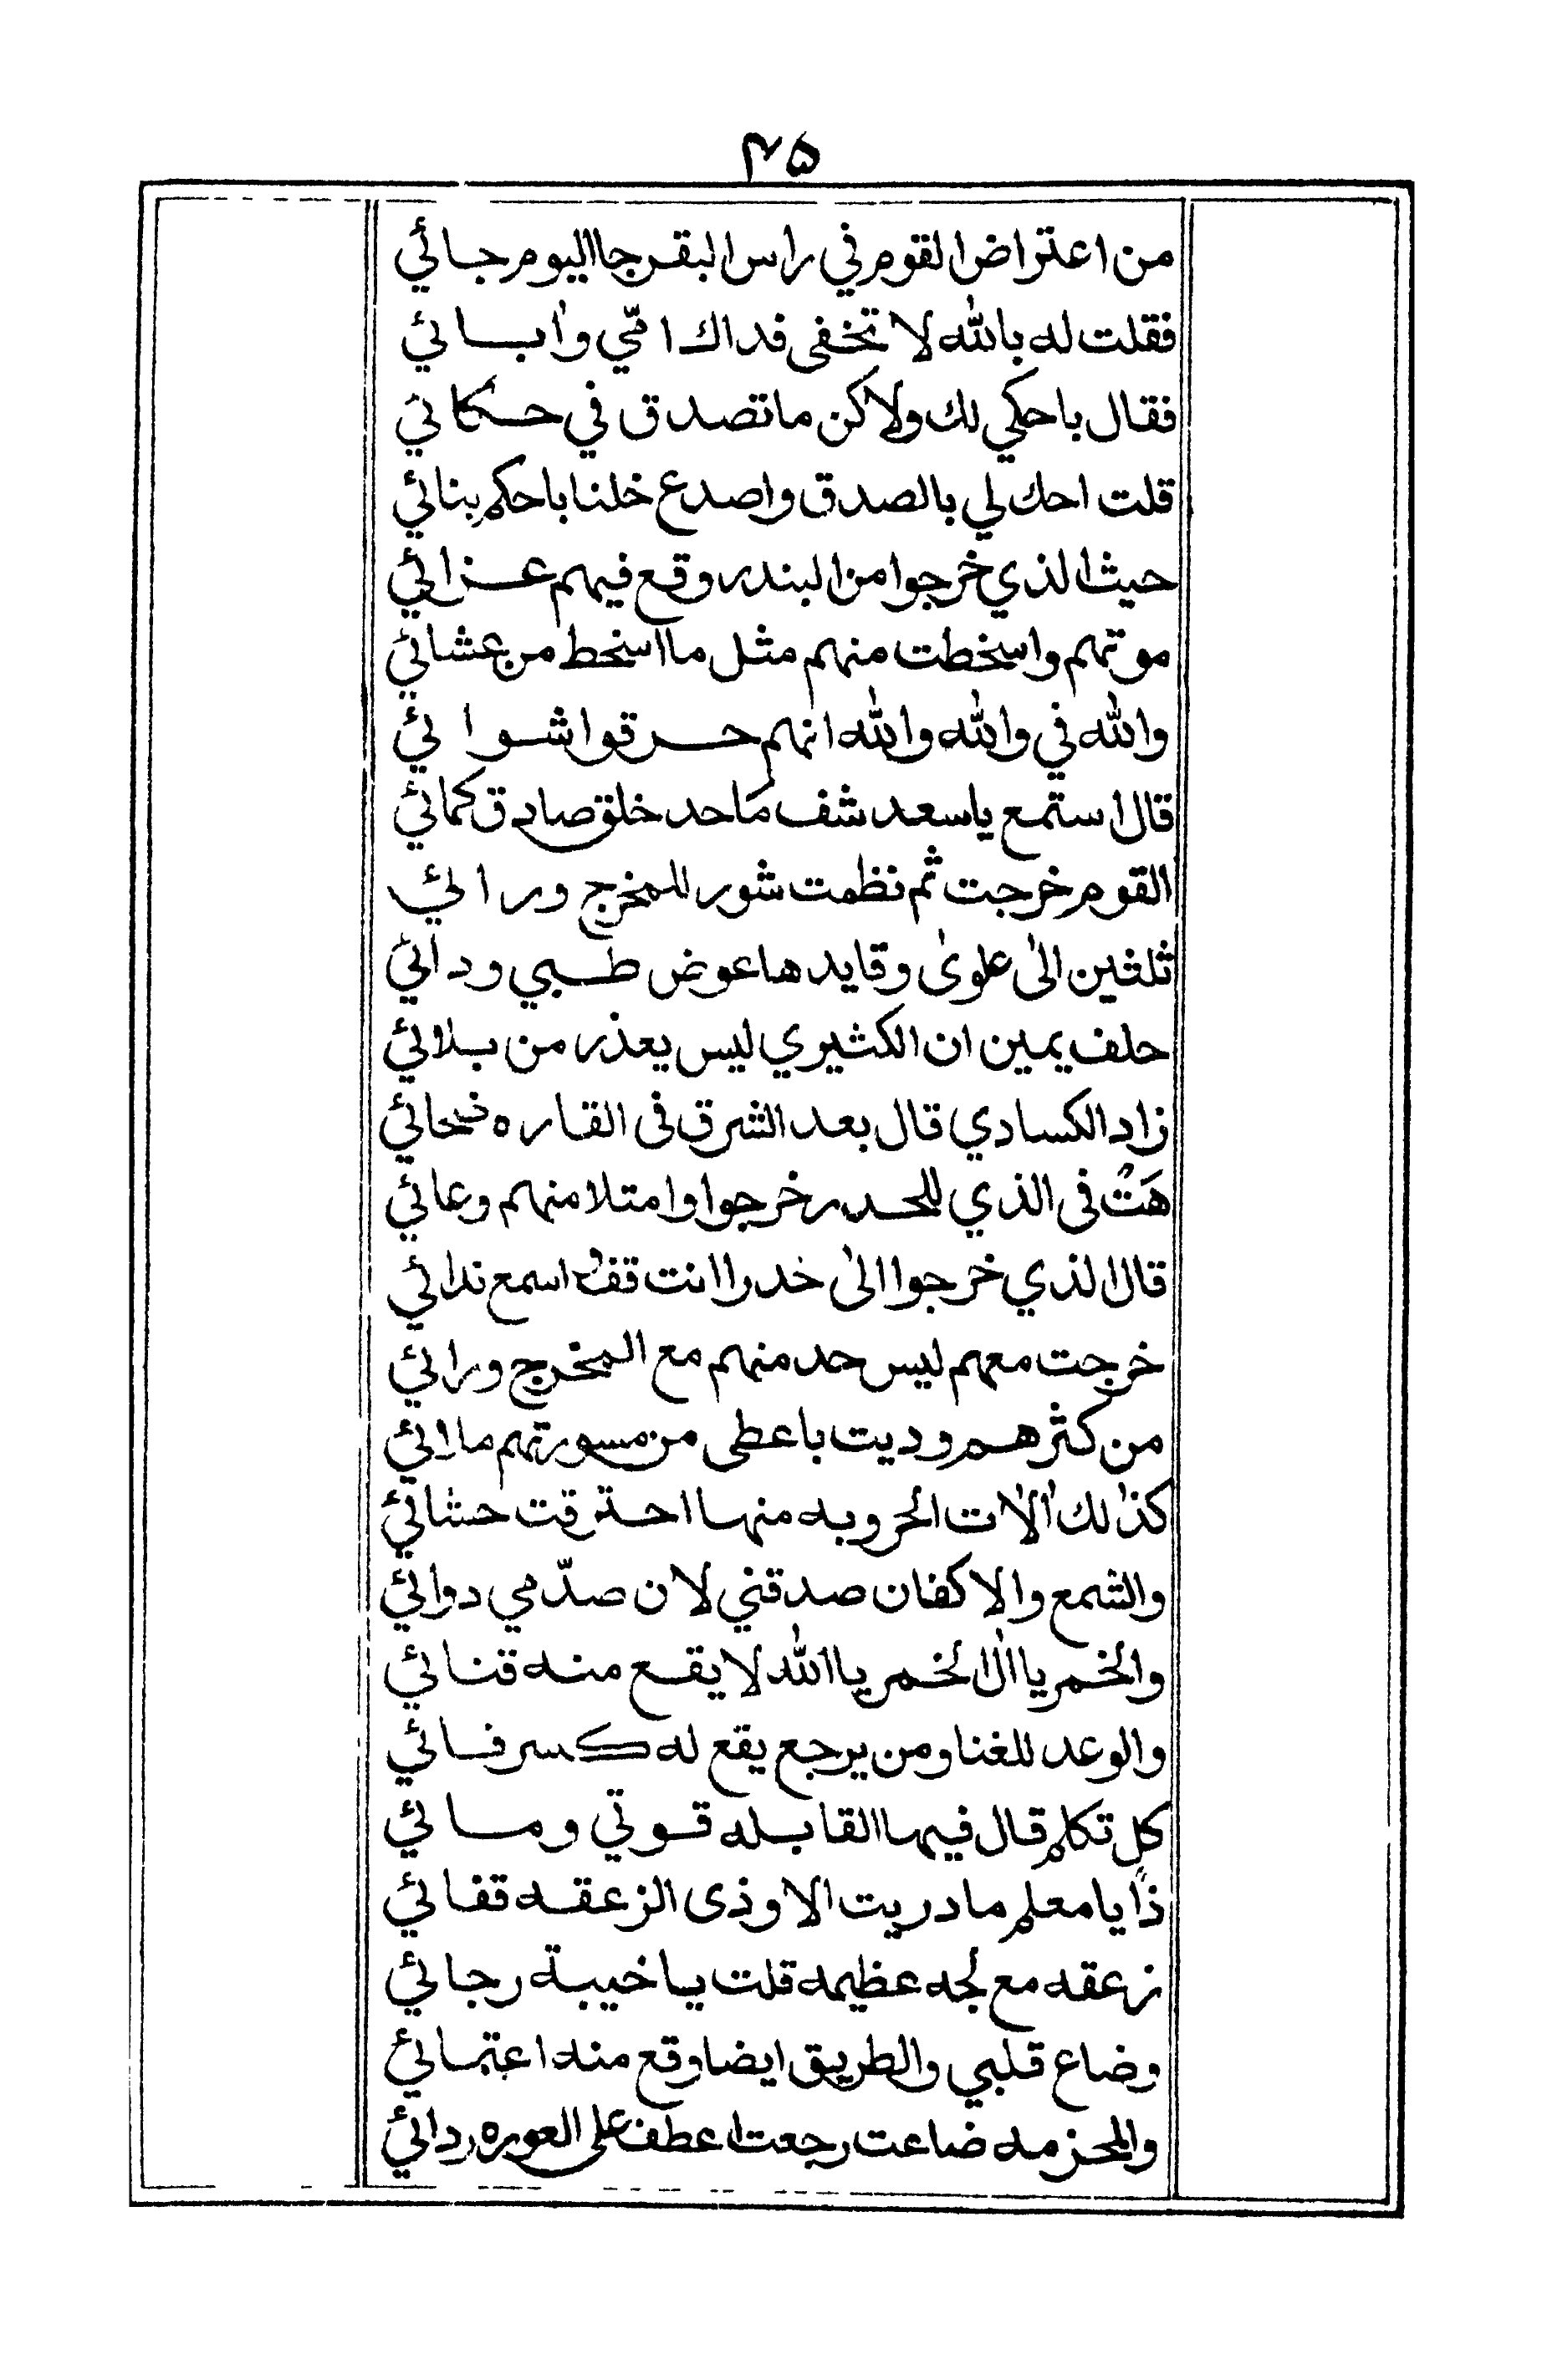 ٤٥
من اعتراض القوم في راس البقرجا اليوم جائي
فقلت له بالله لا تخفى فداك امّي وابائي
فقال باحكي لك ولاكن ماتصدق في حكائي
قلت احك لي بالصدق واصدع خلنا باحكم بنائي
حيث الذي خرجوا من البندر وقع فيهم عزائي
موتهم واسخطت منهم مثل ما اسخط من عشائي
والله في والله والله انهم حرقوا شوائي
قال استمع ياسعد شف ماحد خلق صادق كمائي
القوم خرجت ثم نظمت شور للمخرج ورائي
ثلثين الى علوى وقايدها عوض طبي ودائي
حلف يمين ان الكثيري ليس يعذر من بلائي
زاد الكسادي قال بعد الشرق فى القاره ضحائي
هَتْ فى الذي للحدر خرجوا وامتلا منهم وعائي
قال الذي خرجوا الى خدرا انت قف اسمع ندائي
خرجت معهم ليس حد منهم مع المخرج ورائي
من كثرهم وديت باعطى من مسورتهم مالائي
كذالك الات الحروبه منها احترقت حشائي
والشمع والاكفان صدقني لان صدّمي دوائي
والخمر يا ال الخمر يا الله لايقع منه قنائي
والوعد للغنا ومن يرجع يقع له كسر فائي
كل تكلم قال فيها القابله قوتي ومائي
ذا يا معلم ما دريت الا وذى الزعقه قفائي
زعقه مع لجه عظيمه قلت يا خيبة رجائي
وضاع قلبي والطريق ايضا وقع منه اعتمائي
والمحزمه ضاعت رجعت اعطف على العوره ردائي